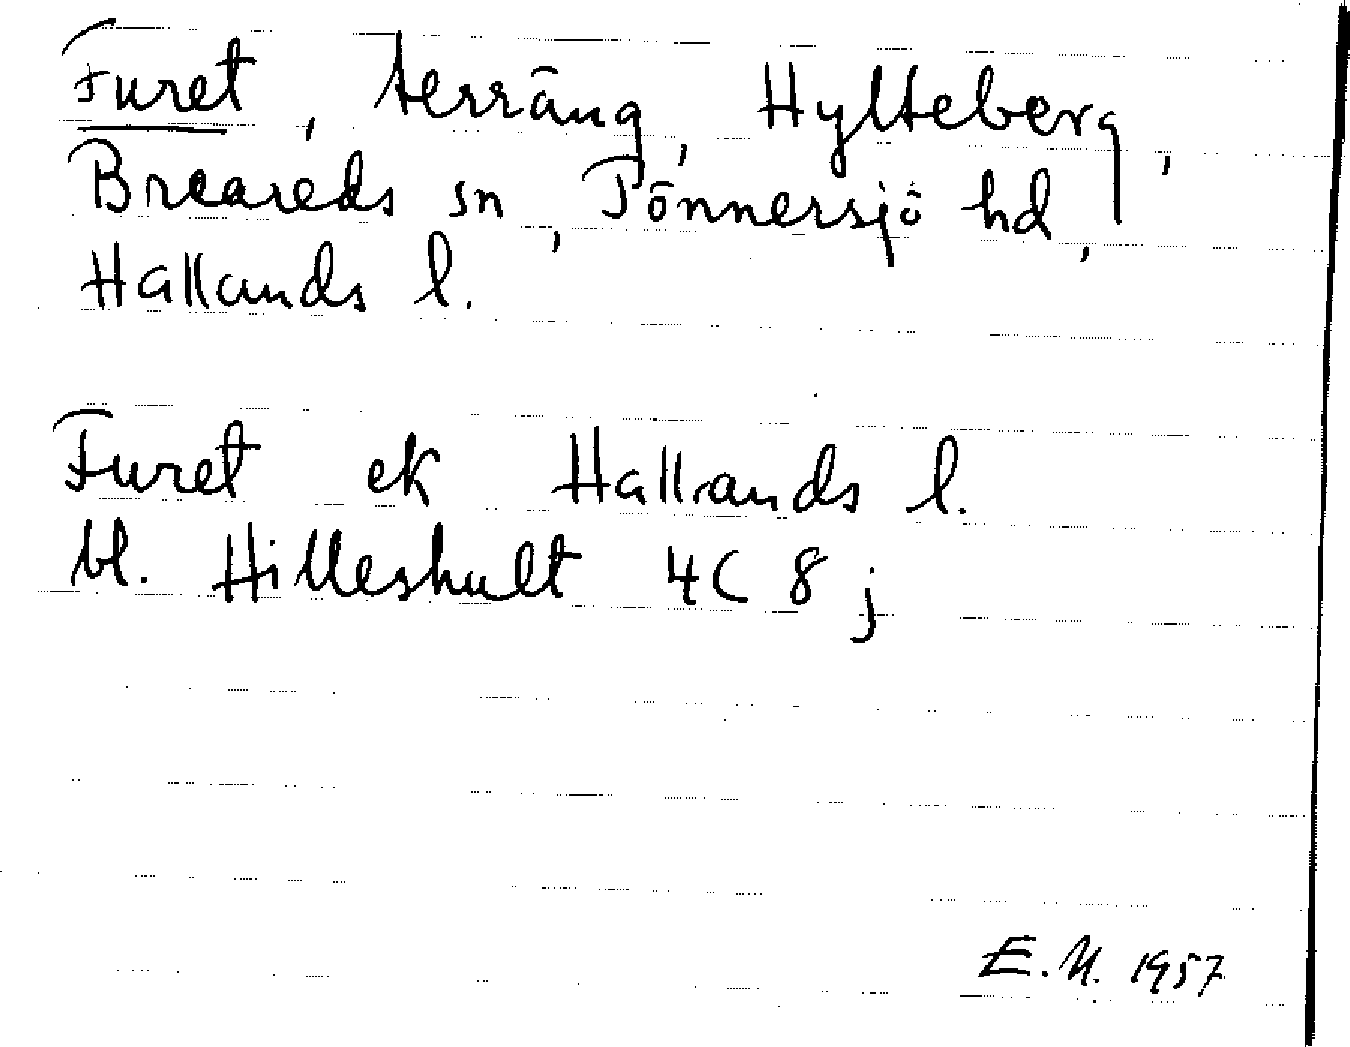 Furet, terräng, Hylteberg,
Breareds sn, Tönnersjö hd,
Hallands l.
Furet ek Hallands l.
bl. Hilleshult 4C 8j
E.N. 1957